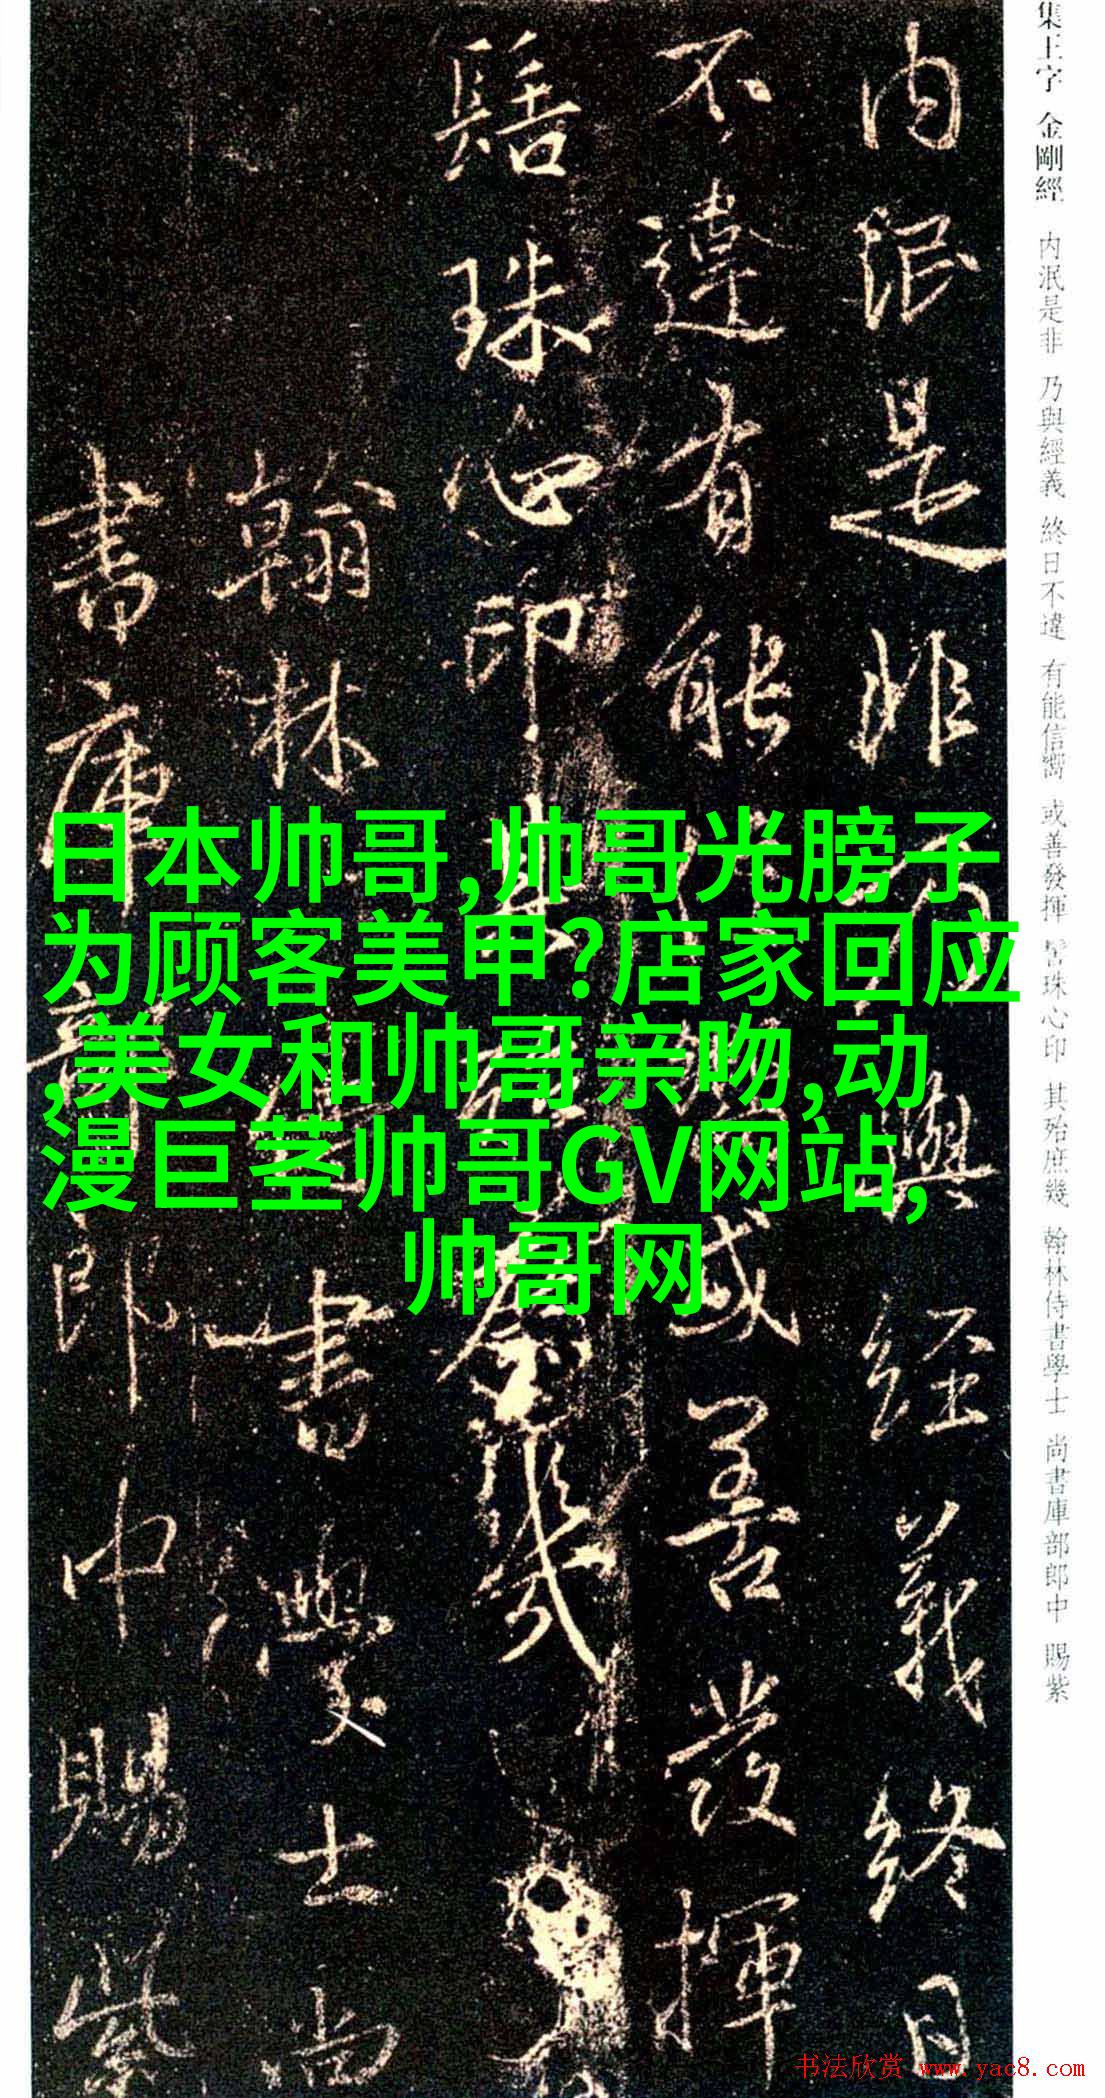 集王字 金剛經 内泯是非 乃與經義 終日不違 有能信嚮 或善發揮 髻珠心印 其殆庶幾 翰林侍書學士 尚書庫部郎中 賜紫
内泯是非乃與經義終日
不違有能信嚮或善發揮
髻珠心印其殆庶幾
翰林侍書學士尚
書庫部郎中賜紫
日本帅哥,帅哥光膀子
为顾客美甲?店家回应
,美女和帅哥亲吻,动
漫巨茎帅哥GV网站,
帅哥网
书法欣赏 www.yac8.com